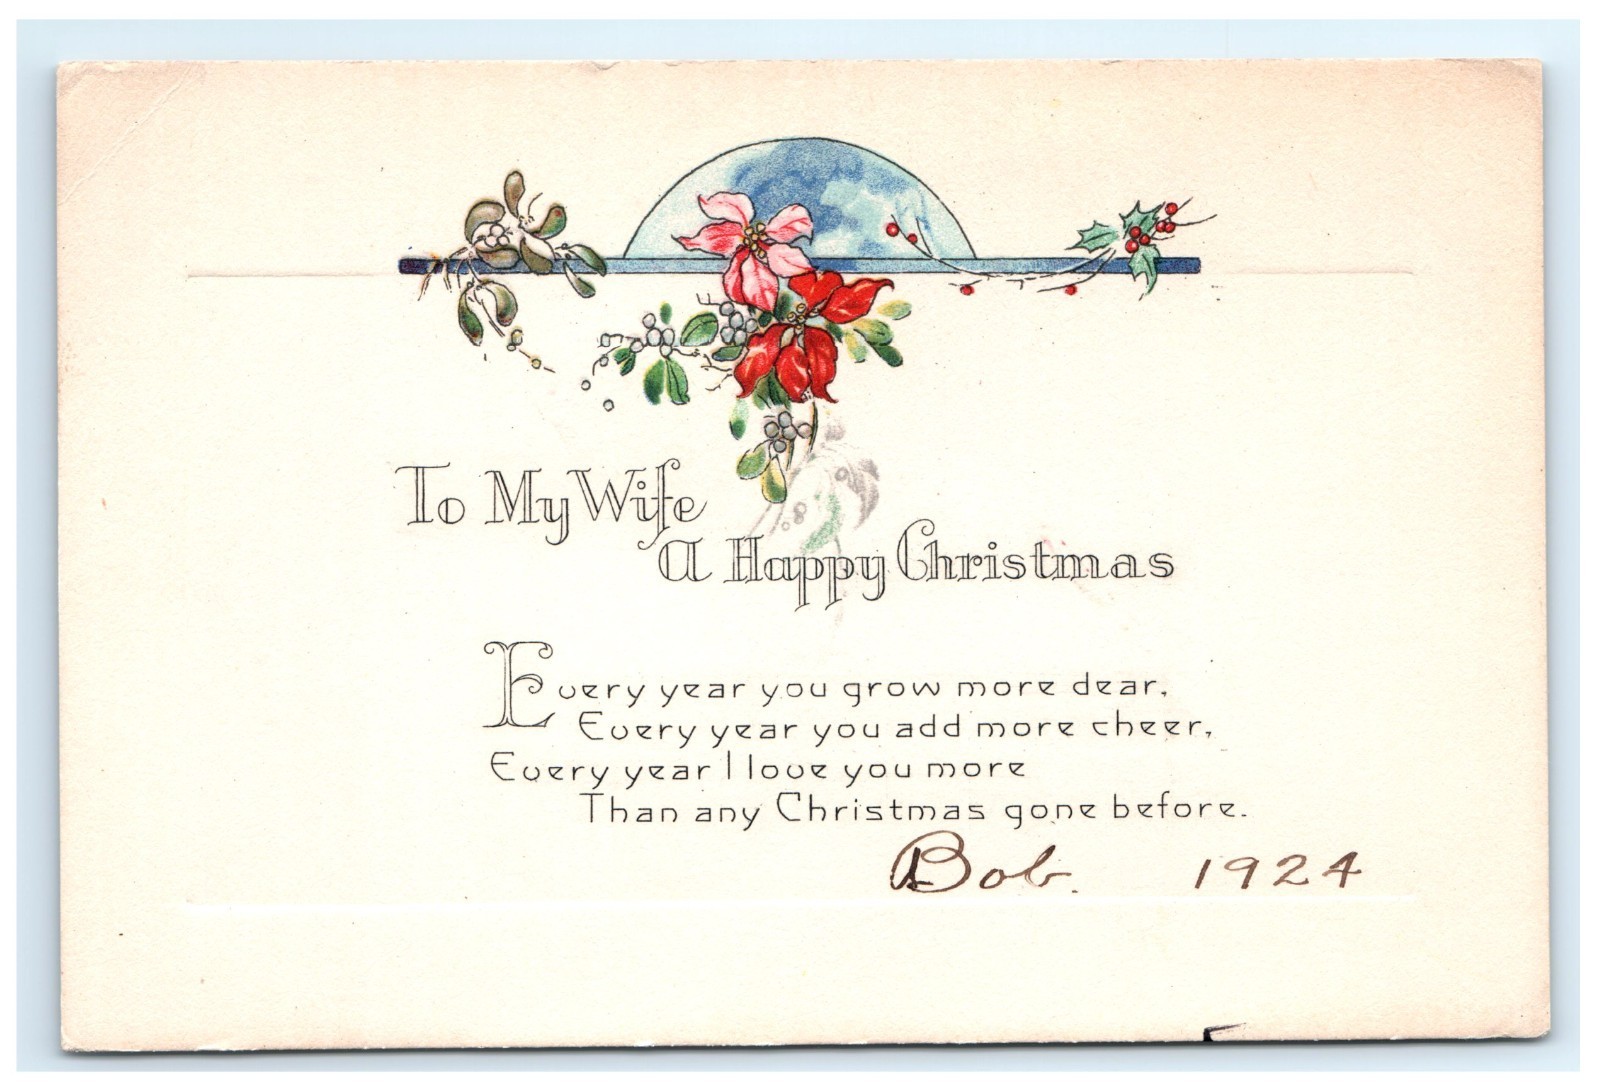 To My Wife
A Happy Christmas
Every year you grow more dear,
Every year you add more cheer,
Every year I love you more
Than any Christmas gone before.
Bob. 1924